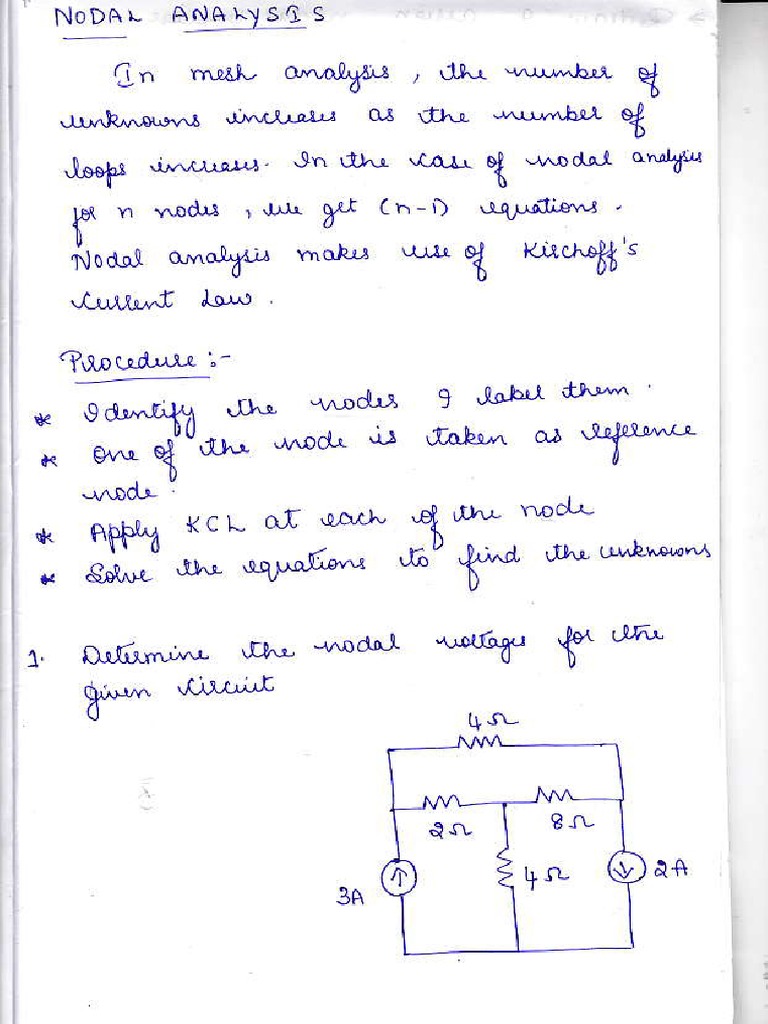 NODAL ANALYSIS
In mesh analysis, the number of
unknowns increases as the number of
loops increases. In the case of nodal analysis
for n nodes, we get (n-1) equations.
Nodal analysis makes use of Kirchoff's
Current Law.
Procedure :-
* Identify the nodes & label them.
* One of the node is taken as reference
node.
* Apply KCL at each of the node
* Solve the equations to find the unknowns
1. Determine the nodal voltages for the
given circuit
4Ω
2Ω
8Ω
4Ω
2A
3A